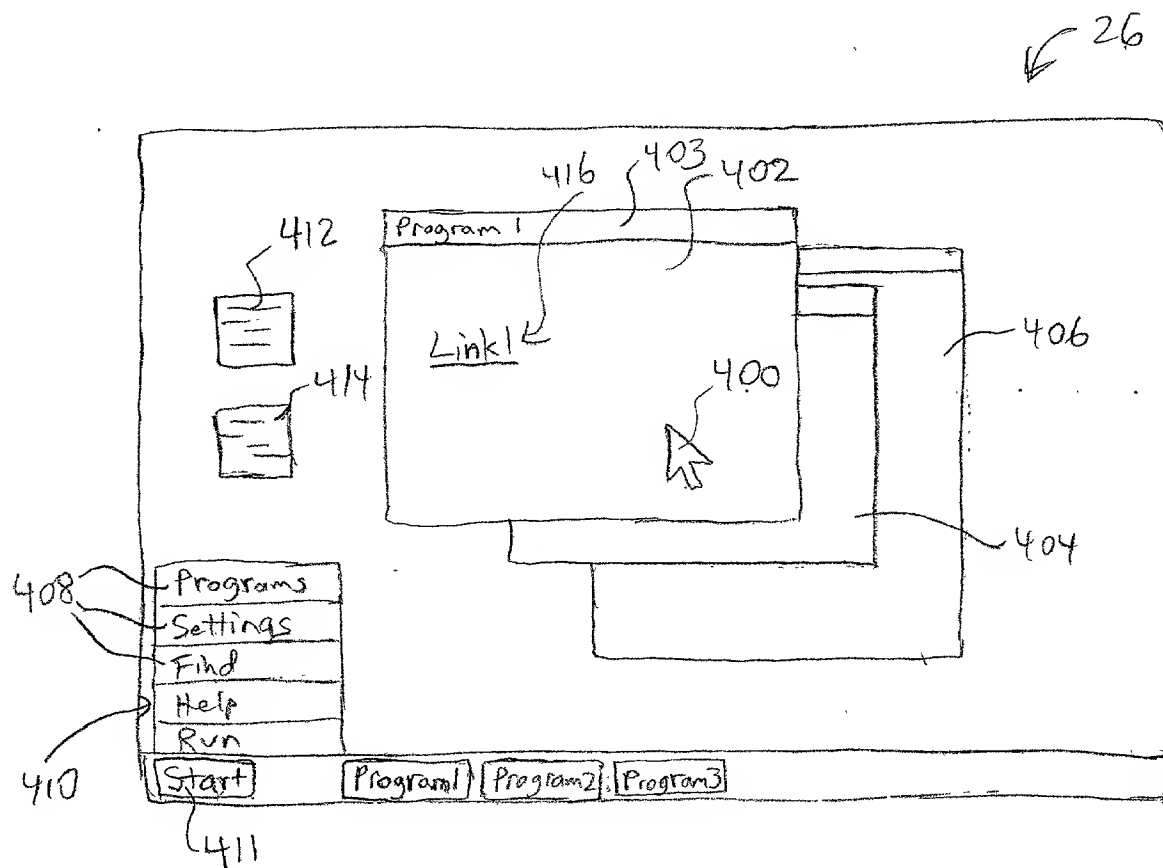 26
416 403 402
412
Program 1
Link1
406
414
400
404
408
Programs
Settings
Find
Help
Run
410
Start Program1 Program2 Program3
411